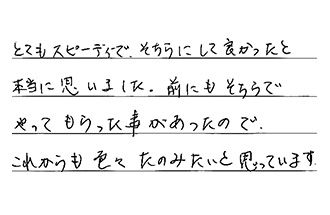 とてもスピーディで、そちらにして良かったと
本当に思いました。前にもそちらで
やってもらった事があったので、
これからも色々たのみたいと思っています。